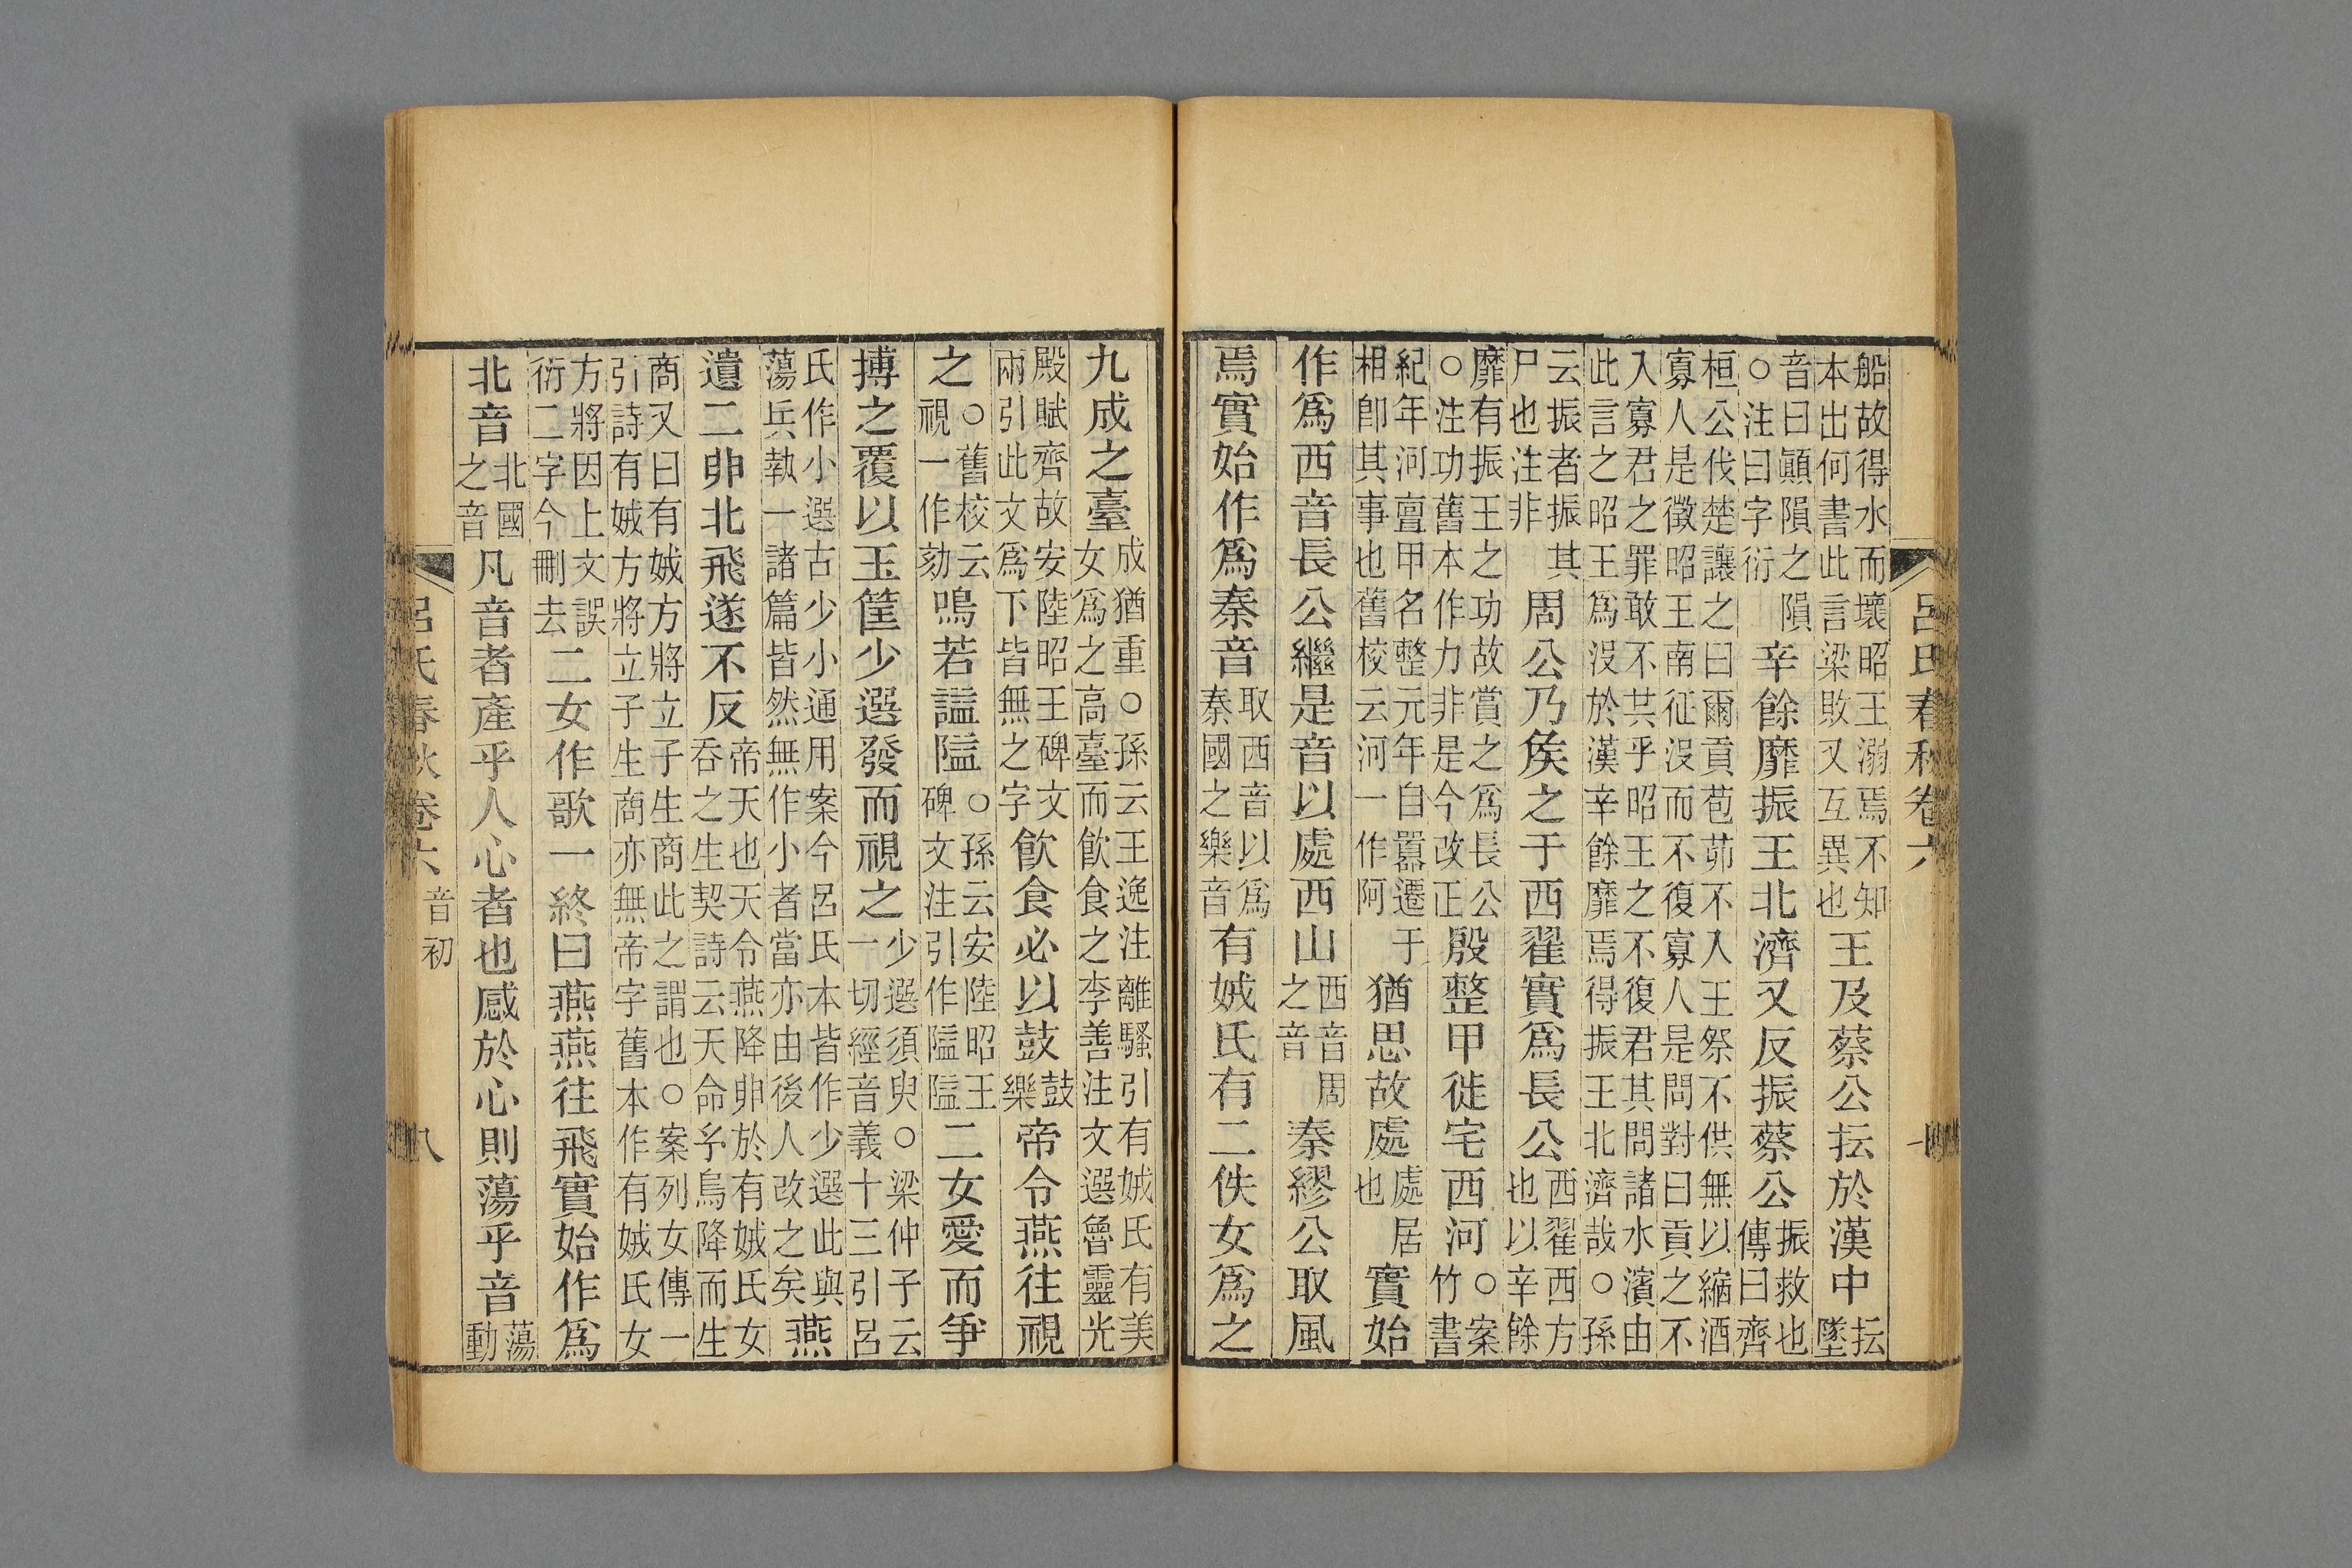 呂氏春秋卷六
船故得水而壞昭王溺焉不知
本出何書此言梁敗又互異也
王及蔡公抎於漢中
抎
墜
音曰顚隕之隕
○注曰字衍
辛餘靡振王北濟又反振蔡公
振救也
傳曰齊
桓公伐楚讓之曰爾貢苞茆不入王祭不供無以縮酒
寡人是徵昭王南征沒而不復寡人是問對曰貢之不
入寡君之罪敢不共乎昭王之不復君其問諸水濱由
此言之昭王爲沒於漢辛餘靡焉得振王北濟哉○孫
云振者振其
尸也注非
周公乃矦之于西翟實爲長公
西翟西方
也以辛餘
靡有振王之功故賞之爲長公
○注功舊本作力非是今改正
殷整甲徙宅西河
○案
竹書
紀年河亶甲名整元年自囂遷于
相卽其事也舊校云河一作阿
猶思故處
處居
也
實始
作爲西音長公繼是音以處西山
西音周
之音
秦繆公取風
焉實始作爲秦音
取西音以爲
秦國之樂音
有娀氏有二佚女爲之
九成之臺
成猶重○孫云王逸注離騷引有娀氏有美
女爲之高臺而飮食之李善注文選魯靈光
殿賦齊故安陸昭王碑文
兩引此文爲下皆無之字
飮食必以鼓
鼓
樂
帝令燕往視
之
○舊校云
視一作劾
鳴若謚隘
○孫云安陸昭王
碑文注引作隘隘
二女愛而爭
搏之覆以玉筐少選發而視之
少選須臾○梁仲子云
一切經音義十三引呂
氏作小選古少小通用案今呂氏本皆作少選此與
蕩兵執一諸篇皆然無作小者當亦由後人改之矣
燕
遺二卵北飛遂不反
帝天也天令燕降卵於有娀氏女
吞之生契詩云天命玄鳥降而生
商又曰有娀方將立子生商此之謂也○案列女傳一
引詩有娀方將立子生商亦無帝字舊本作有娀氏女
方將因上文誤
衍二字今刪去
二女作歌一終曰燕燕往飛實始作爲
北音
北國
之音
凡音者產乎人心者也感於心則蕩乎音
蕩
動
呂氏春秋卷六
音初
八